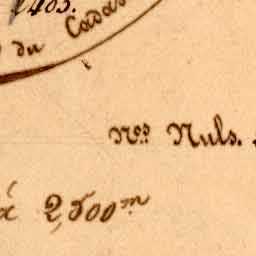 1403.
du Cadas
Nos Nuls.
à 2,500m